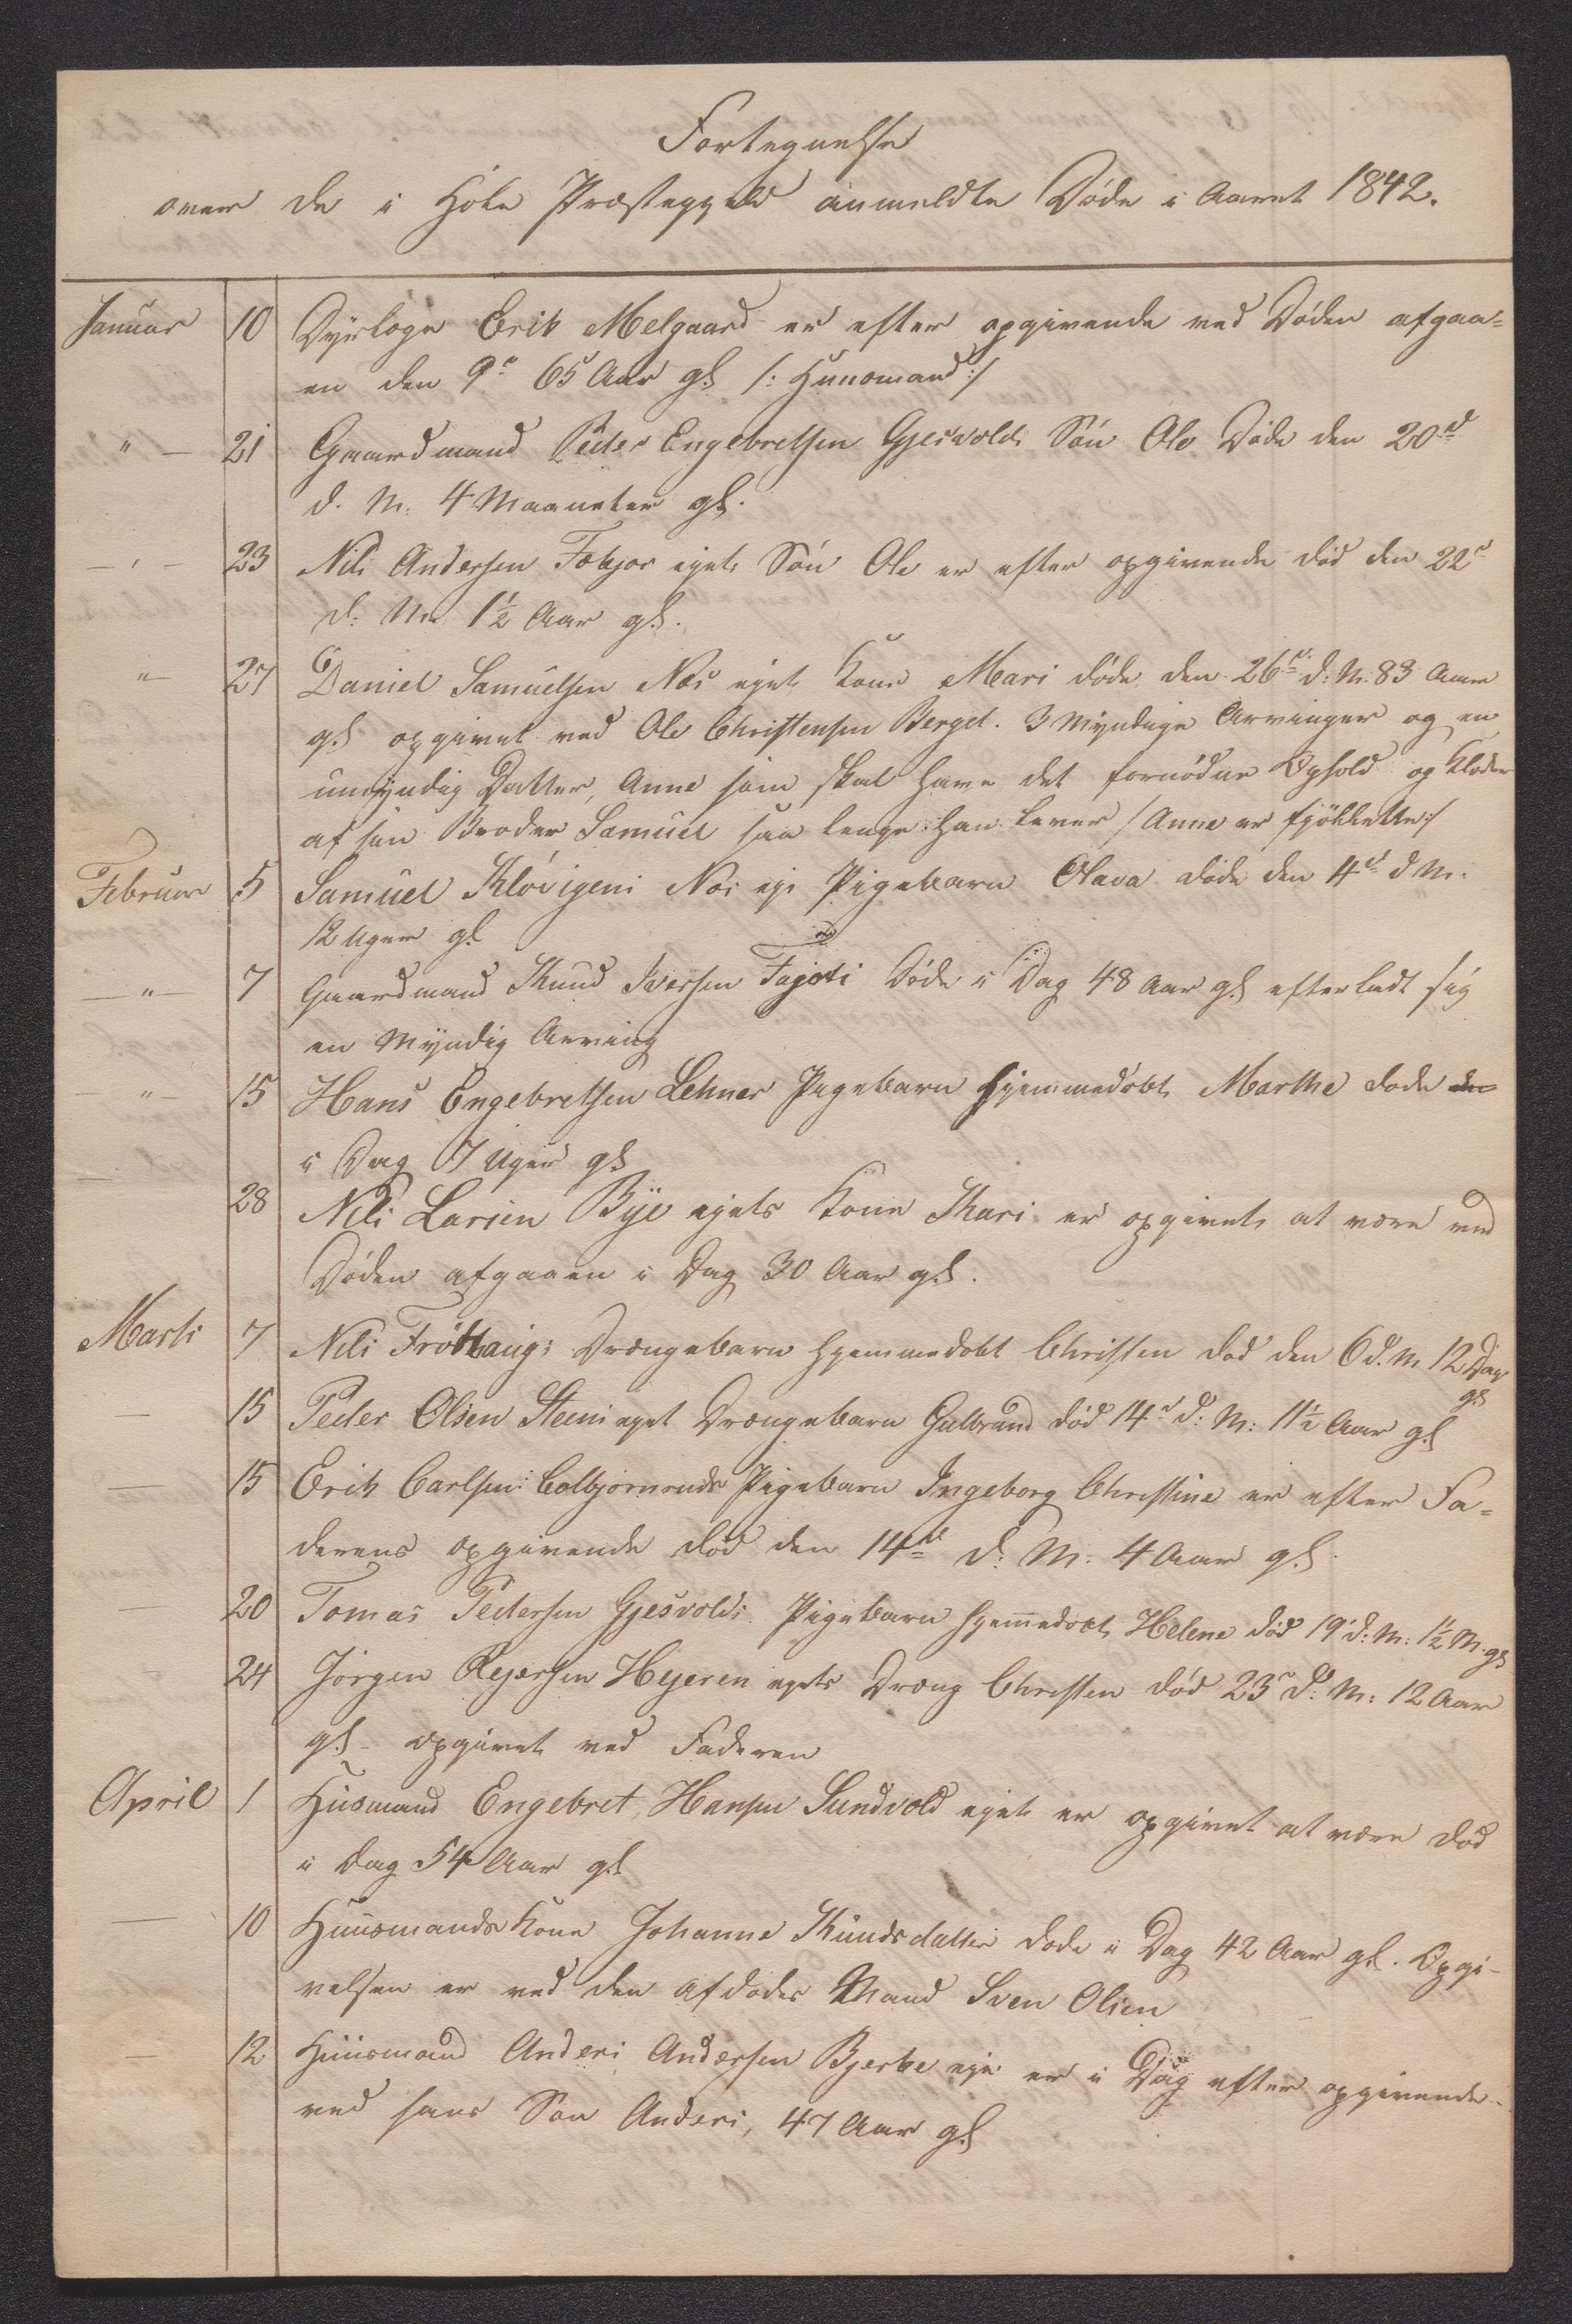 Fortegnelse
over de i Hole Præstegjeld anmeldte Døde i Aaret 1842.
Januar 10 Erik Melgaard er efter opgivende ved Døden afgaa=
en den 9de 65 Aar gl. /: Huusmand :/
" — 21 Gaardmand Peder Engebretsen Gjesvolds Søn Ole Døde den 20de
d. M. 4 Maaneter gl.
— " — 23 Nils Andersen Fekjær ejets Søn Ole er efter opgivende død den 22de
d: M. 1½ Aar gl.
" 27 Daniel Samuelsen Næs ejets Kone Mari døde den 26de d: M. 83 Aar
gl. opgivet ved Ole Christensen Berget. 3 Myndige Arvinger og en
umyndig Datter, Anne som skal have det fornødne Ophold og Klæder
af sin Broder Samuel saa lenge han lever /: Anne er fjollette :/
Februar 5 Samuel Kløvigens Næs eje Pigebarn Olava døde den 4de d M:
12 Uger gl
— " — 7 Gaardmand Knud Iversen Fagsti Døde i Dag 48 Aar gl. efterladt sig
en Myndig Arving
— " — 15 Hans Engebretsen Lehnes Pigebarn hjemmedøbt Marthe døde den
i Dag 7 Uger gl.
28 Nils Larsen Bÿe ejets Kone Kari er opgivet at være ved
Døden afgaaen i Dag 30 Aar gl.
Marts 7 Nils Frøhaugs Drængebarn hjemmedøbt Christen død den 6 d. M. 12 Dage
gl.
— 15 Peder Olsen Steens eget Drængebarn Gulbrand død 14de d: M: 11½ Aar gl
— 15 Erik Carlsen Colbjørnruds Pigebarn Ingeborg Christine er efter Fa=
derens opgivende død den 14de d: M: 4 Aar gl.
— 20 Tomas Pedersen Gjesvolds Pigebarn hjem̄edøbt Helene død 19 d: M: 1½ M. gl
— 24 Jørgen Rejersen Hejeren ejets Dræng Christen død 23de d: M: 12 Aar
gl. opgivet ved Faderen
April 1 Husmand Engebret Hansen Sundvold ejet er opgivet at være død
i Dag 54 Aar gl
— 10 Huusmands Kone Johanne Knudsdatter døde i Dag 42 Aar gl. Opgi-
velsen er ved den afdødes Mand Sven Olsen
— 12 Huusmand Anders Andersen Bjerke eje er i Dag efter opgivende
ved hans Søn Anders, 47 Aar gl